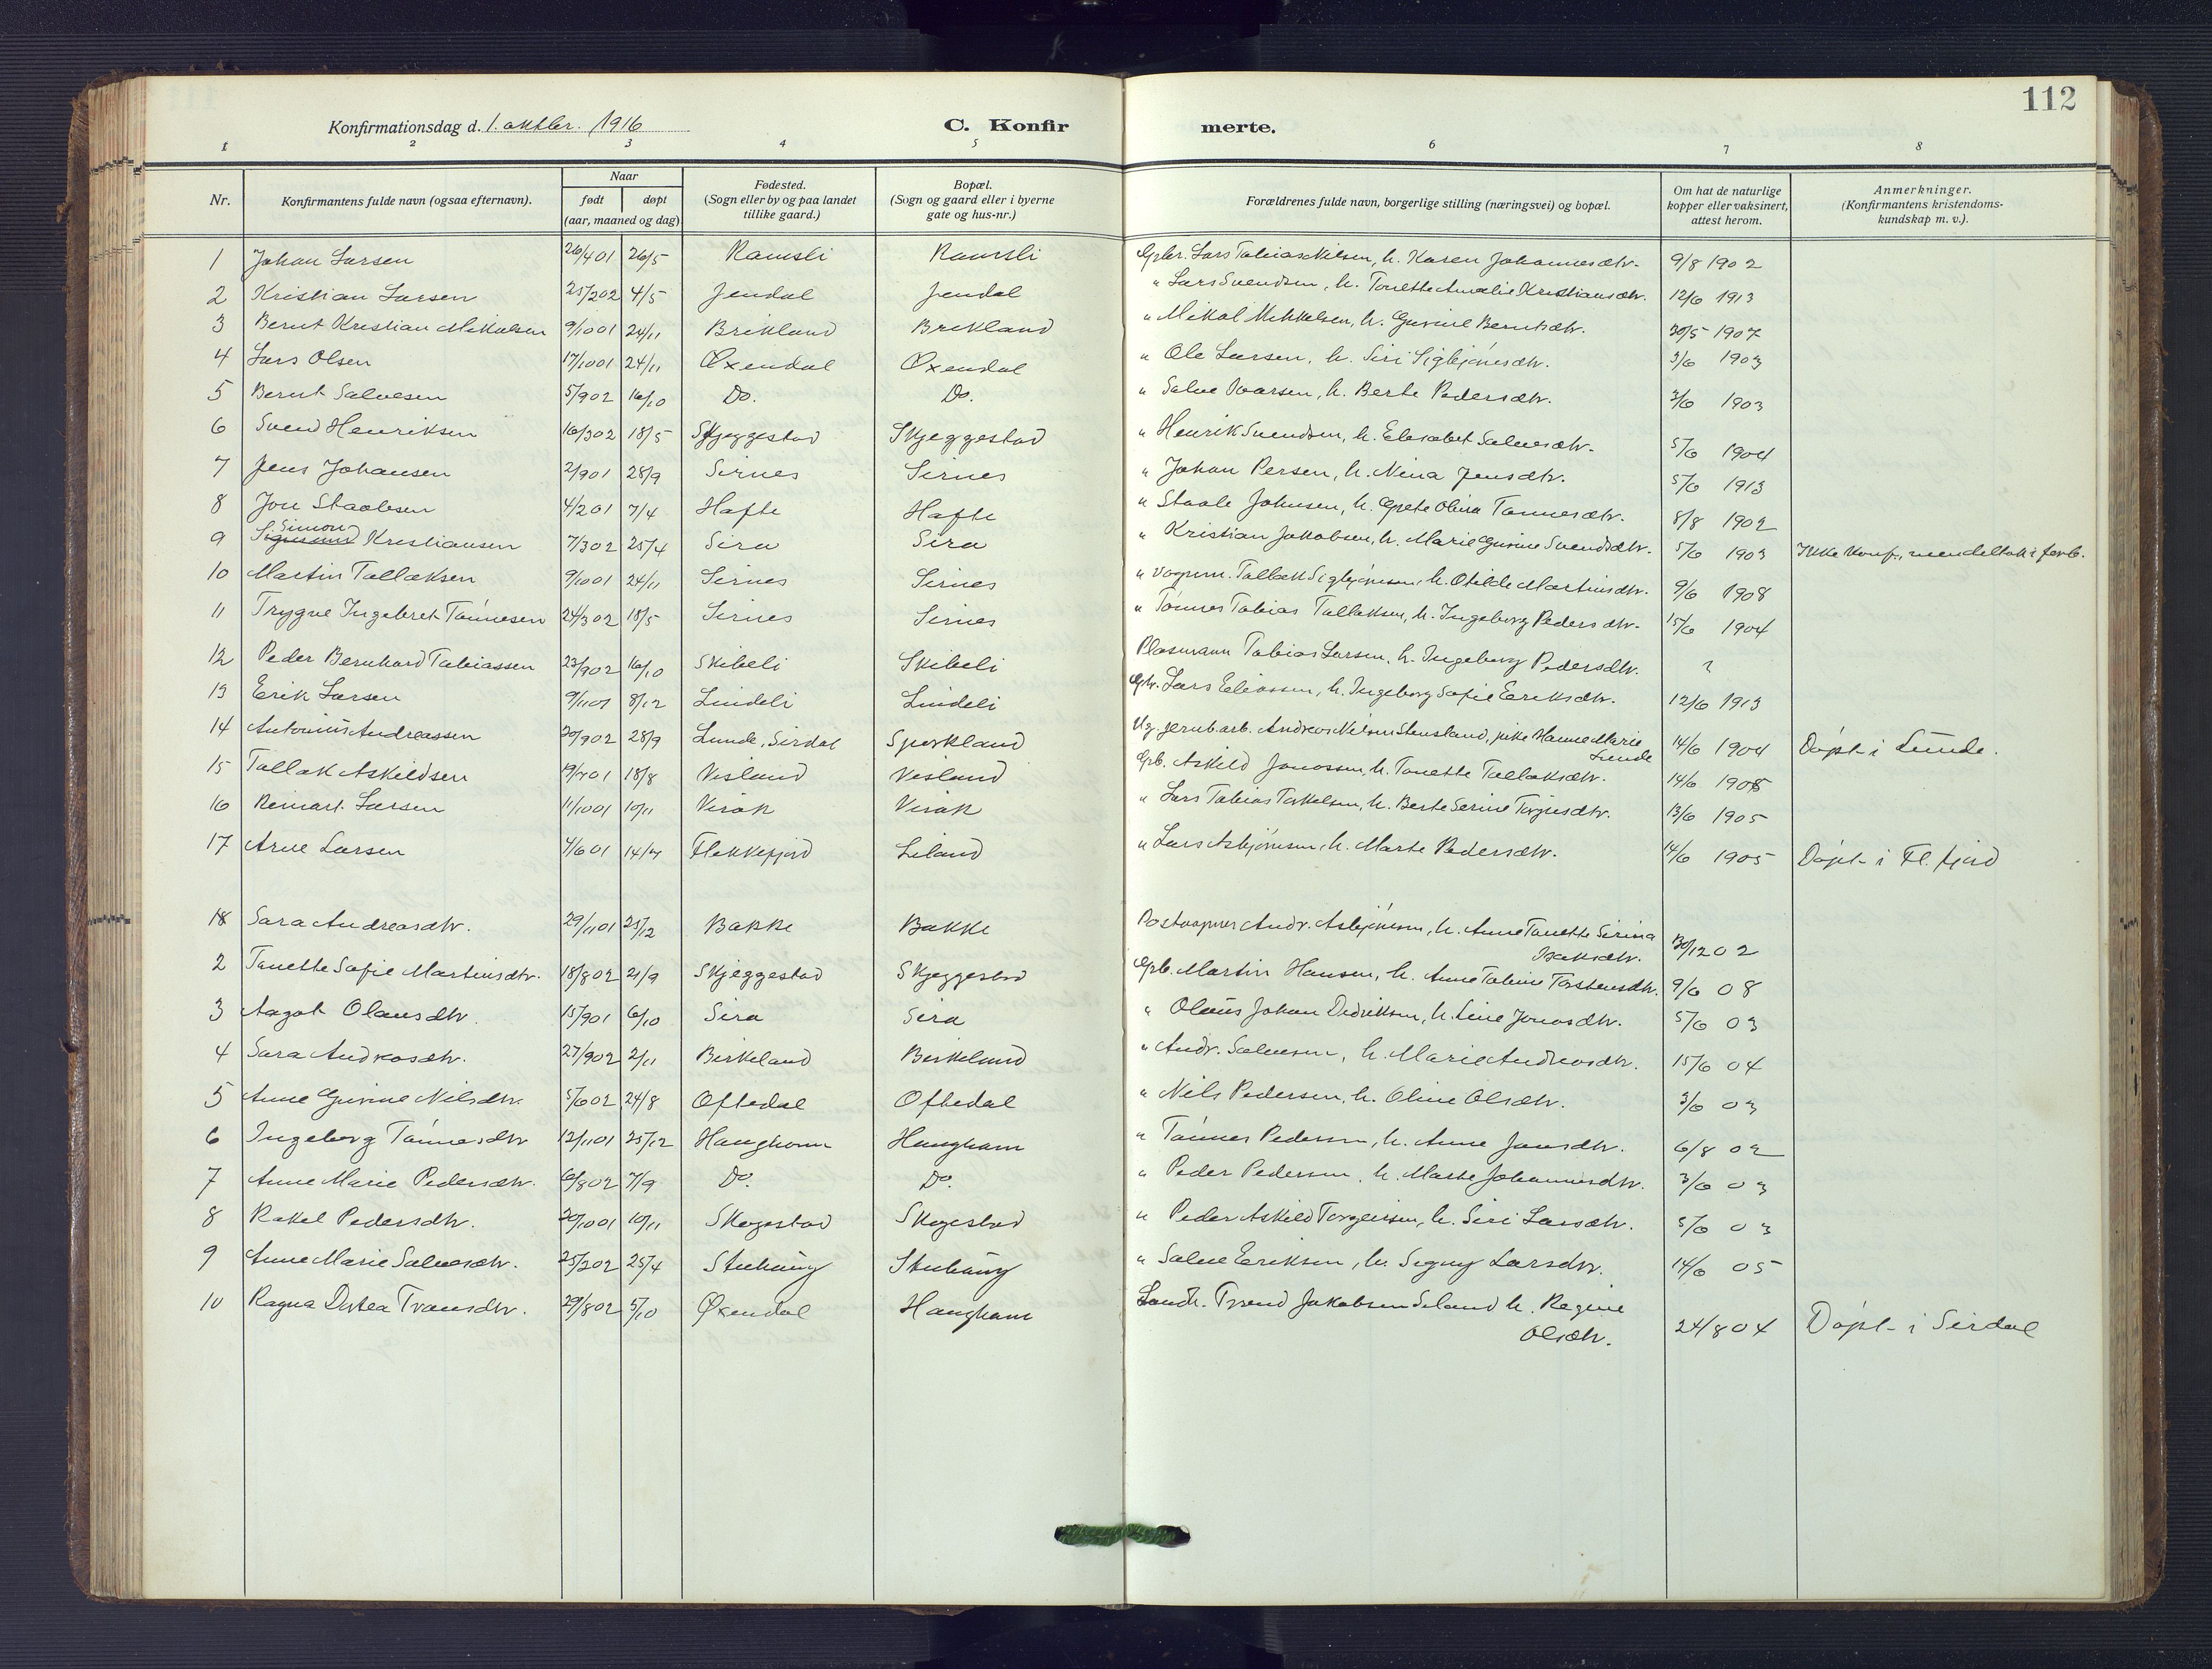 112
Konfirmationsdag d. 1. oktbr. 1916
C. Konfirmerte.
1 2 3 4 5 6 7 8
Nr.
Konfirmantens fulde navn (ogsaa efternavn).
Naar
født døpt
(aar, maaned og dag)
Fødested.
(Sogn eller by og paa landet
tillike gaard.)
Bopæl.
(Sogn og gaard eller i byerne
gate og hus-nr.)
Forældrenes fulde navn, borgerlige stilling (næringsvei) og bopæl.
Om hat de naturlige
kopper eller vaksinert,
attest herom.
Anmerkninger.
(Konfirmantens kristendoms-
kundskap m. v.).
1 Johan Larsen 26/4 01 26/5 Ramsli Ramsli Gbr. Lars Tobias Nilsen, h. Karen Johannesdtr. 9/8 1902
2 Kristian Larsen 25/2 02 4/5 Jendal Jendal " Lars Svendsen, h. Tonette Amalie Kristiansdtr. 12/6 1913
3 Bernt Kristian Mikalsen 9/10 01 24/11 Brikland Brikland " Mikal Mikkelsen, h. Gurine Berntsdtr. 30/5 1907
4 Lars Olsen 17/10 01 24/11 Øxendal Øxendal " Ole Larsen, h. Siri Sigbjørnsdtr. 3/6 1903
5 Bernt Salvesen 5/9 02 16/10 Do. Do. " Salve Ivarsen, h. Berte Pedersdtr. 3/6 1903
6 Svend Henriksen 16/3 02 18/5 Skjeggestad Skjeggestad " Henrik Svendsen, h. Elisabet Salvesdtr. 5/6 1904
7 Jens Johansen 2/9 01 28/9 Sirnes Sirnes " Johan Persen, h. Nina Jensdtr. 5/6 1913
8 Jon Staalesen 4/2 01 7/4 Hafte Hafte " Staale Johnsen, h. Grete Olina Tønnesdtr. 8/8 1902
Simon
9 Sigmund Kristiansen 7/3 02 25/4 Sira Sira " Kristian Jakobsen, h. Marie Gurine Svendsdtr. 5/6 1903 Ikke konf., men deltok i forb.
10 Martin Tallaksen 9/10 01 24/11 Sirnes Sirnes " vognm. Tallak Sigbjørnsen, h. Otilde Martinsdtr. 9/6 1908
11 Trygve Ingebret Tønnesen 24/3 02 18/5 Sirnes Sirnes " Tønnes Tobias Tallaksen, h. Ingeborg Pedersdtr. 15/6 1904
12 Peder Bernhard Tobiassen 23/9 02 16/10 Skibeli Skibeli Plasmann Tobias Larsen, h. Ingeborg Pedersdtr. ?
13 Erik Larsen 9/11 01 8/12 Lindeli Lindeli Gbr. Lars Eliassen, h. Ingeborg Sofie Eriksdtr. 12/6 1913
14 Antonius Andreassen 20/9 02 28/9 Lunde, Sirdal Sporkland Ug. jernb.arb. Andreas Nilsen Stensland, pike Hanne Marie
Lunde 14/6 1904 Døpt i Lunde.
15 Tallak Askildsen 19/7 01 18/8 Visland Visland Gb. Askild Jonassen, h. Tonette Tallaksdtr. 14/6 1905
16 Reinart Larsen 11/10 01 10/11 Virak Virak " Lars Tobias Torkelsen, h. Berte Serine Torgersdtr. 13/6 1905
17 Arne Larsen 4/6 01 14/7 Flekkefjord Liland " Lars Asbjørnsen, h. Marte Pedersdtr. 14/6 1905 Døpt i Fl.fjord
18 Sara Andreasdtr. 29/11 01 25/12 Bakke Bakke Postaapner Andr. Asbjørnsen, h. Anne Tonette Sirina
Isaksdtr. 30/12 02
2 Tonette Sofie Martinsdtr. 18/8 02 21/9 Skjeggestad Skjeggestad Gb. Martin Hansen, h. Anne Tobine Torstensdtr. 9/6 08
3 Aagot Olausdtr. 15/9 01 6/10 Sira Sira " Olaus Johan Didriksen, h. Line Jonasdtr. 5/6 03
4 Sara Andreasdtr. 27/9 02 2/11 Birkeland Birkeland " Andr. Salvesen, h. Marie Andreasdtr. 15/6 04
5 Anne Gurine Nilsdtr. 5/6 02 24/8 Oftedal Oftedal " Nils Pedersen, h. Oline Olsdtr. 3/6 03
6 Ingeborg Tønnesdtr 12/11 01 25/12 Haughom Haughom " Tønnes Pedersen, h. Anne Jonsdtr. 6/8 02
7 Anne Marie Pedersdtr. 6/8 02 7/9 Do. Do. " Peder Pedersen, h. Marte Johannesdtr. 3/6 03
8 Rakel Pedersdtr. 20/10 01 10/11 Skogestad Skogestad " Peder Askild Torgeirsen, h. Siri Larsdtr. 5/6 03
9 Anne Marie Salvesdtr. 25/2 02 25/4 Stuhaug Stuhaug " Salve Eriksen, h. Signy Larsdtr. 14/6 05
10 Ragna Dortea Tronsdtr. 29/8 02 5/10 Øxendal Haugham Landh. Trond Jakobsen Seland h. Regine
Olsdtr. 24/8 04 Døpt i Sirdal